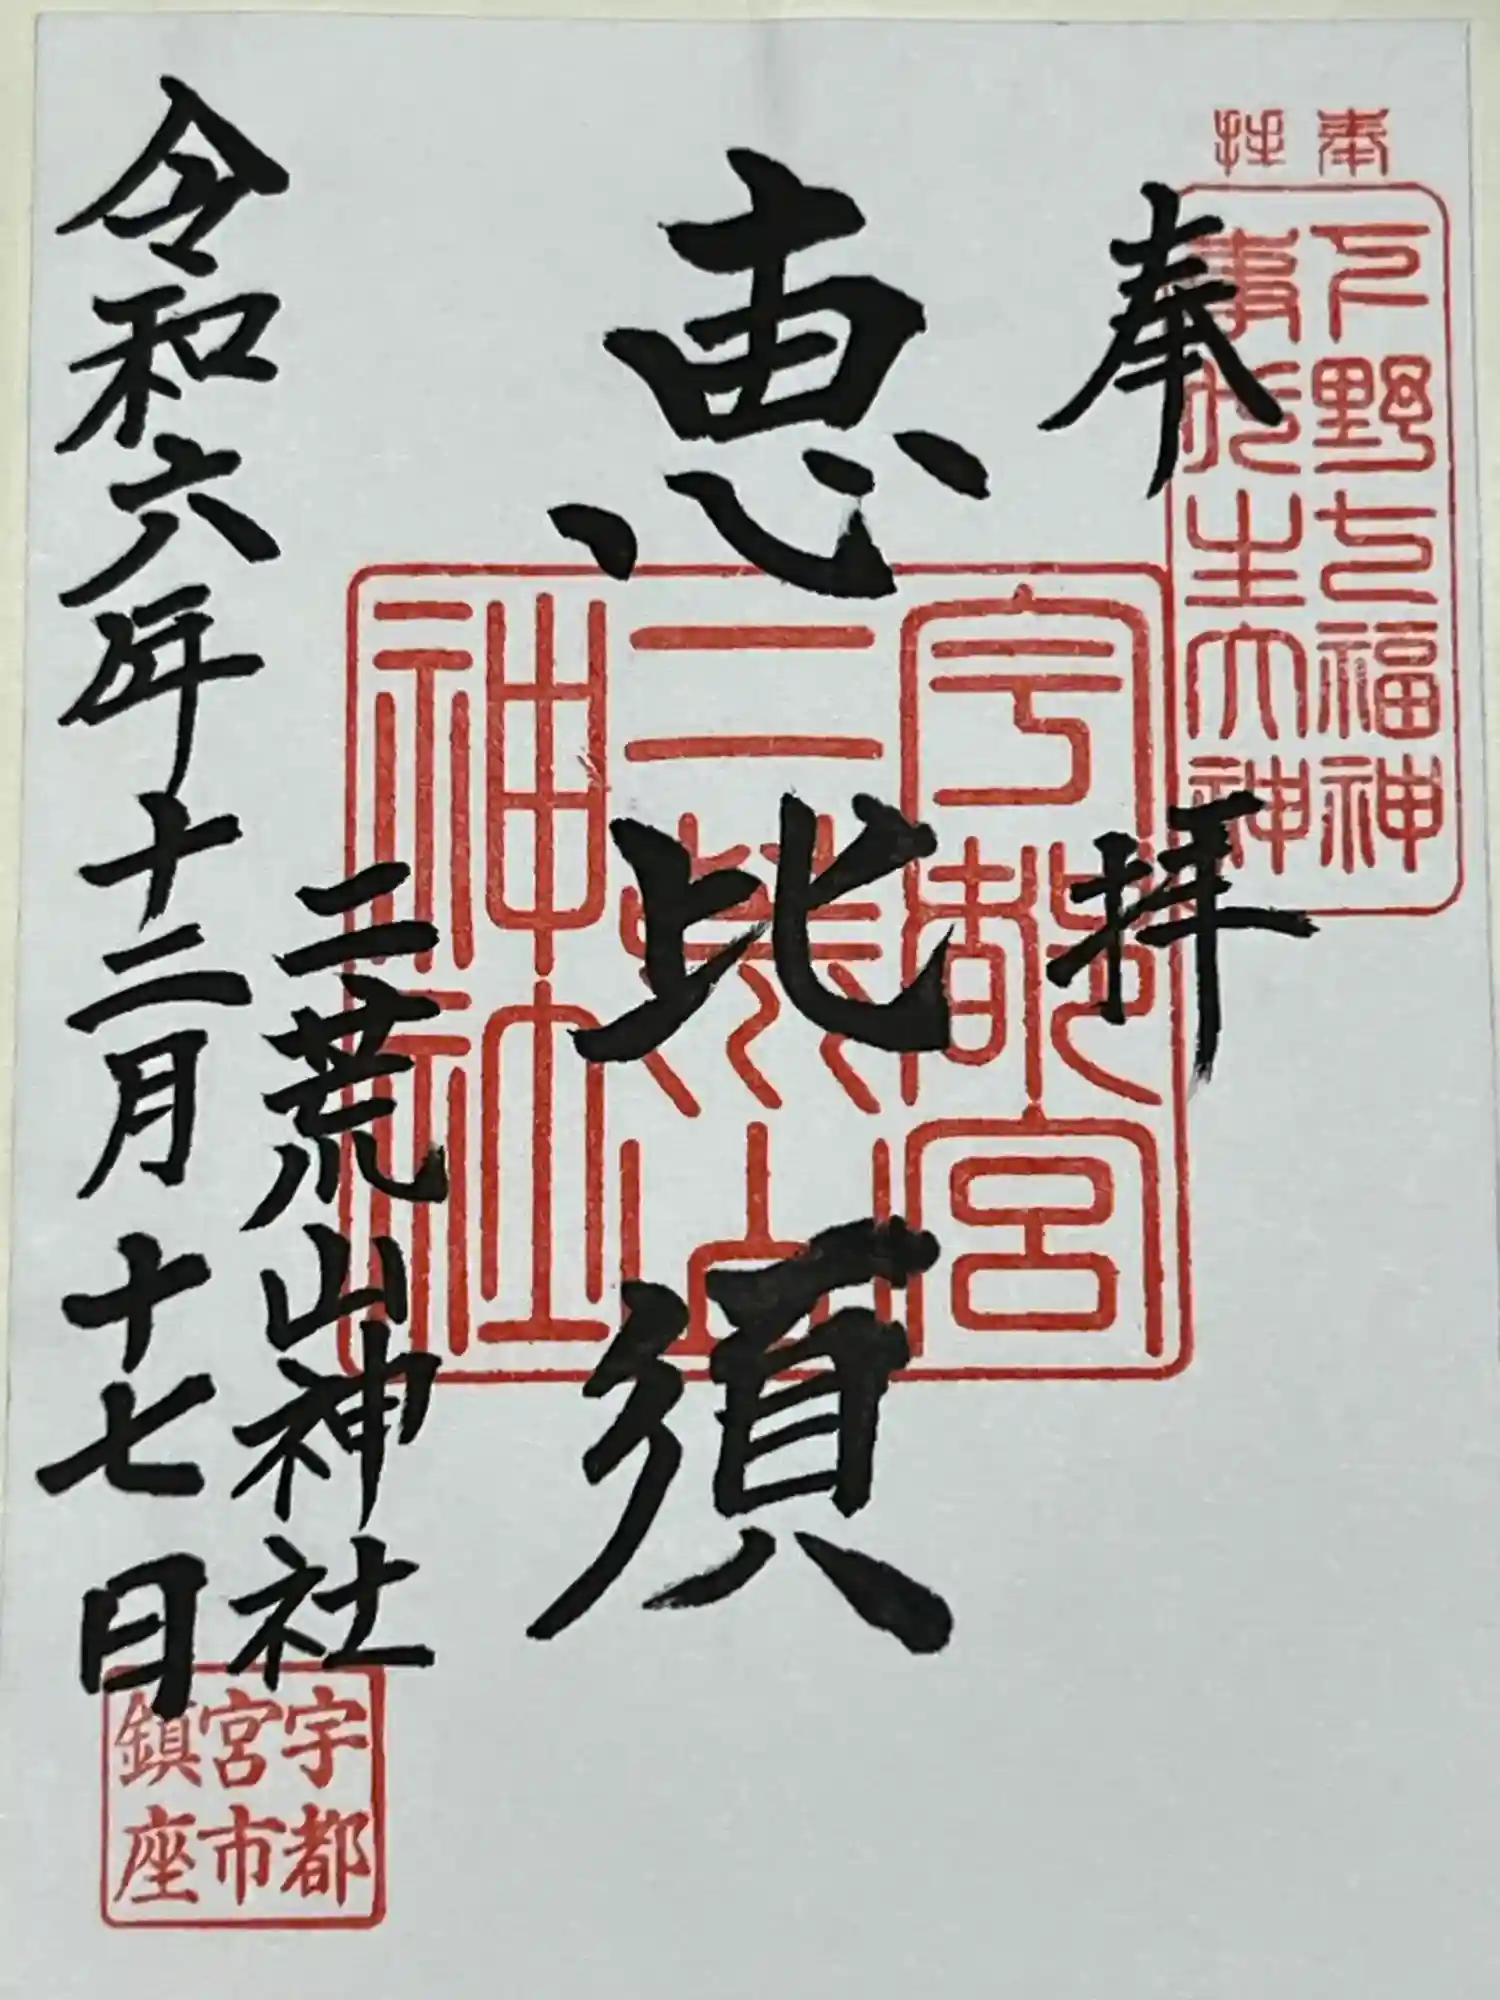 奉拝
下野七福神
事代主大神
奉拝
宇都宮
二荒山
神社
恵比須
二荒山神社
令和六年十二月十七日
宇都
宮市
鎮座